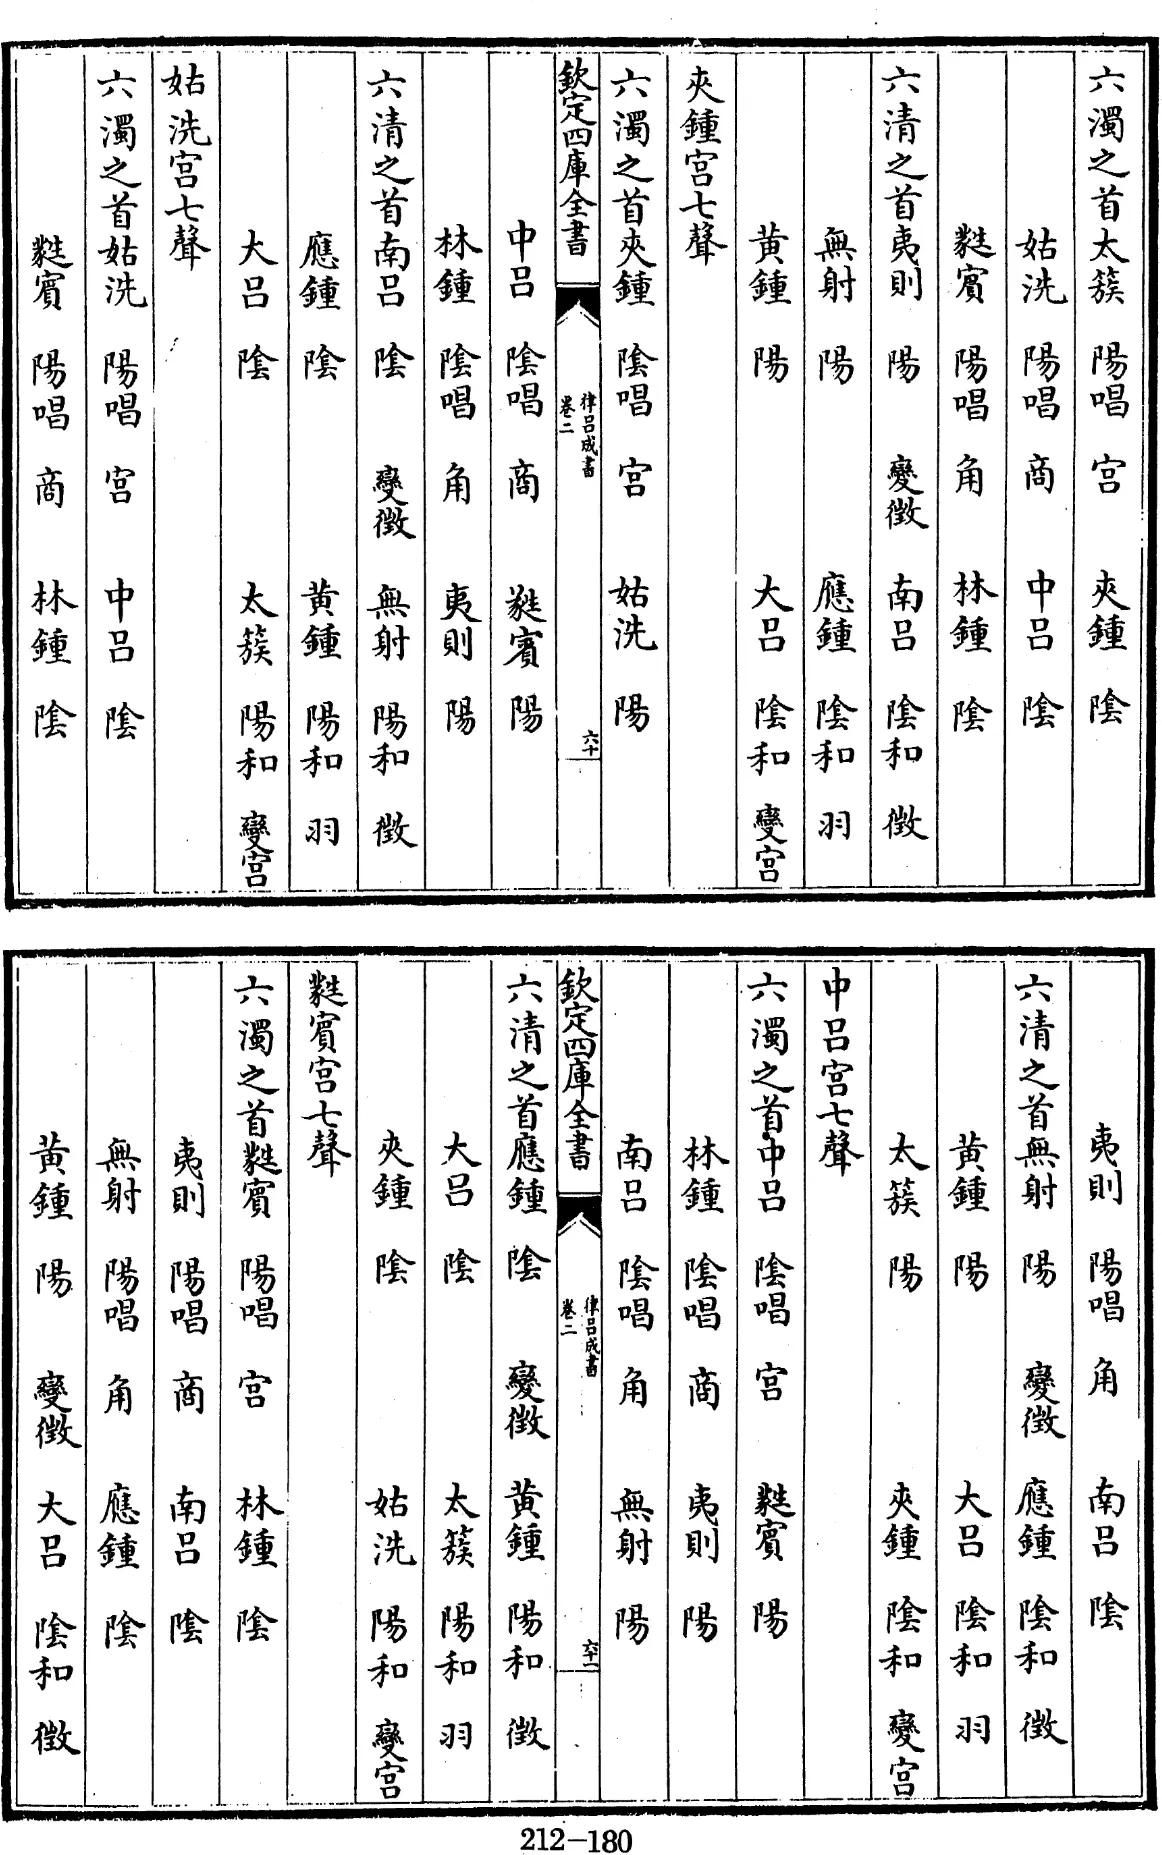 六濁之首太簇　陽唱　宫　夾鍾　隂
姑洗　陽唱　商　中吕　隂
蕤賔　陽唱　角　林鍾　隂
六清之首夷則　陽　變徴　南吕　隂和　徴
無射　陽　應鍾　隂和　羽
黄鍾　陽　大吕　隂和　變宫
夾鍾宫七聲
六濁之首夾鍾　隂唱　宫　姑洗　陽
欽定四庫全書　律吕成書卷二　六十
中吕　隂唱　商　蕤賔　陽
林鍾　隂唱　角　夷則　陽
六清之首南吕　隂　變徴　無射　陽和　徴
應鍾　隂　黄鍾　陽和　羽
大吕　隂　太簇　陽和　變宫
姑洗宫七聲
六濁之首姑洗　陽唱　宫　中吕　隂
蕤賔　陽唱　商　林鍾　隂
夷則　陽唱　角　南吕　隂
六清之首無射　陽　變徴　應鍾　隂和　徴
黄鍾　陽　大吕　隂和　羽
太簇　陽　夾鍾　隂和　變宫
中吕宫七聲
六濁之首中吕　隂唱　宫　蕤賔　陽
林鍾　隂唱　商　夷則　陽
南吕　隂唱　角　無射　陽
欽定四庫全書　律吕成書卷二　六十一
六清之首應鍾　隂　變徴　黄鍾　陽和　徴
大吕　隂　太簇　陽和　羽
夾鍾　隂　姑洗　陽和　變宫
蕤賔宫七聲
六濁之首蕤賔　陽唱　宫　林鍾　隂
夷則　陽唱　商　南吕　隂
無射　陽唱　角　應鍾　隂
黄鍾　陽　變徴　大吕　隂和　徴
212-180